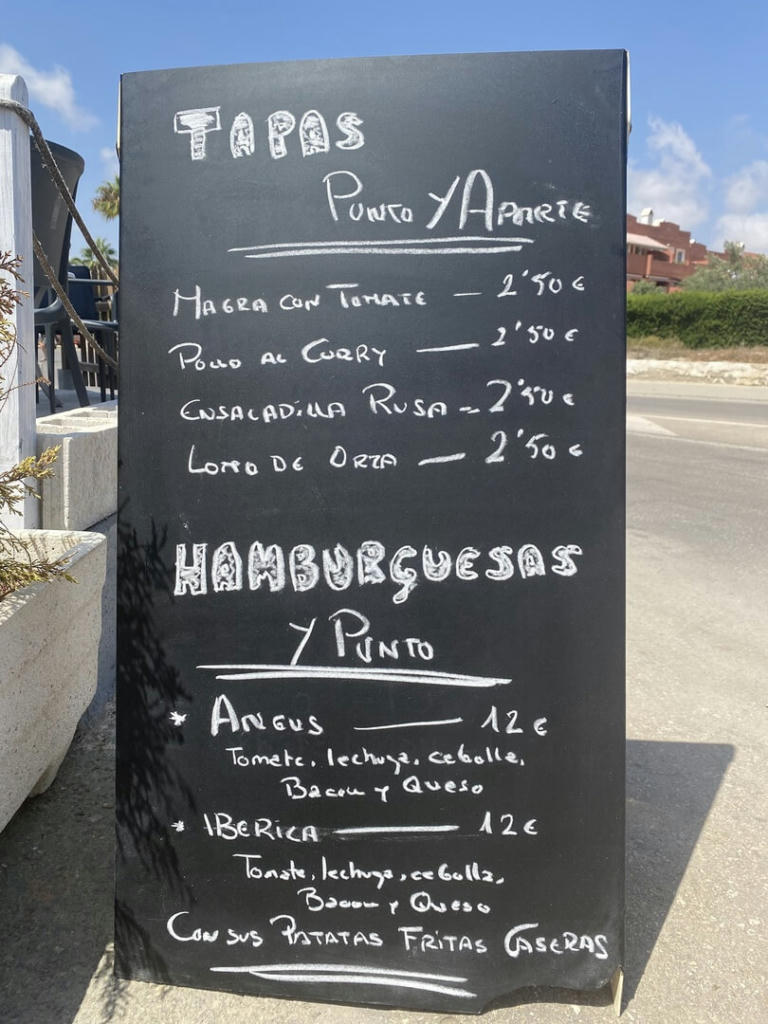 TAPAS
PUNTO Y APARTE
MAGRA CON TOMATE — 2'50 €
POLLO AL CURRY — 2'50 €
ENSALADILLA RUSA — 2'50 €
LOMO DE ORZA — 2'50 €
HAMBURGUESAS
Y PUNTO
* ANGUS — 12 €
Tomate, lechuga, cebolla,
Bacon y Queso
* IBERICA — 12 €
Tomate, lechuga, cebolla,
Bacon y Queso
CON SUS PATATAS FRITAS CASERAS